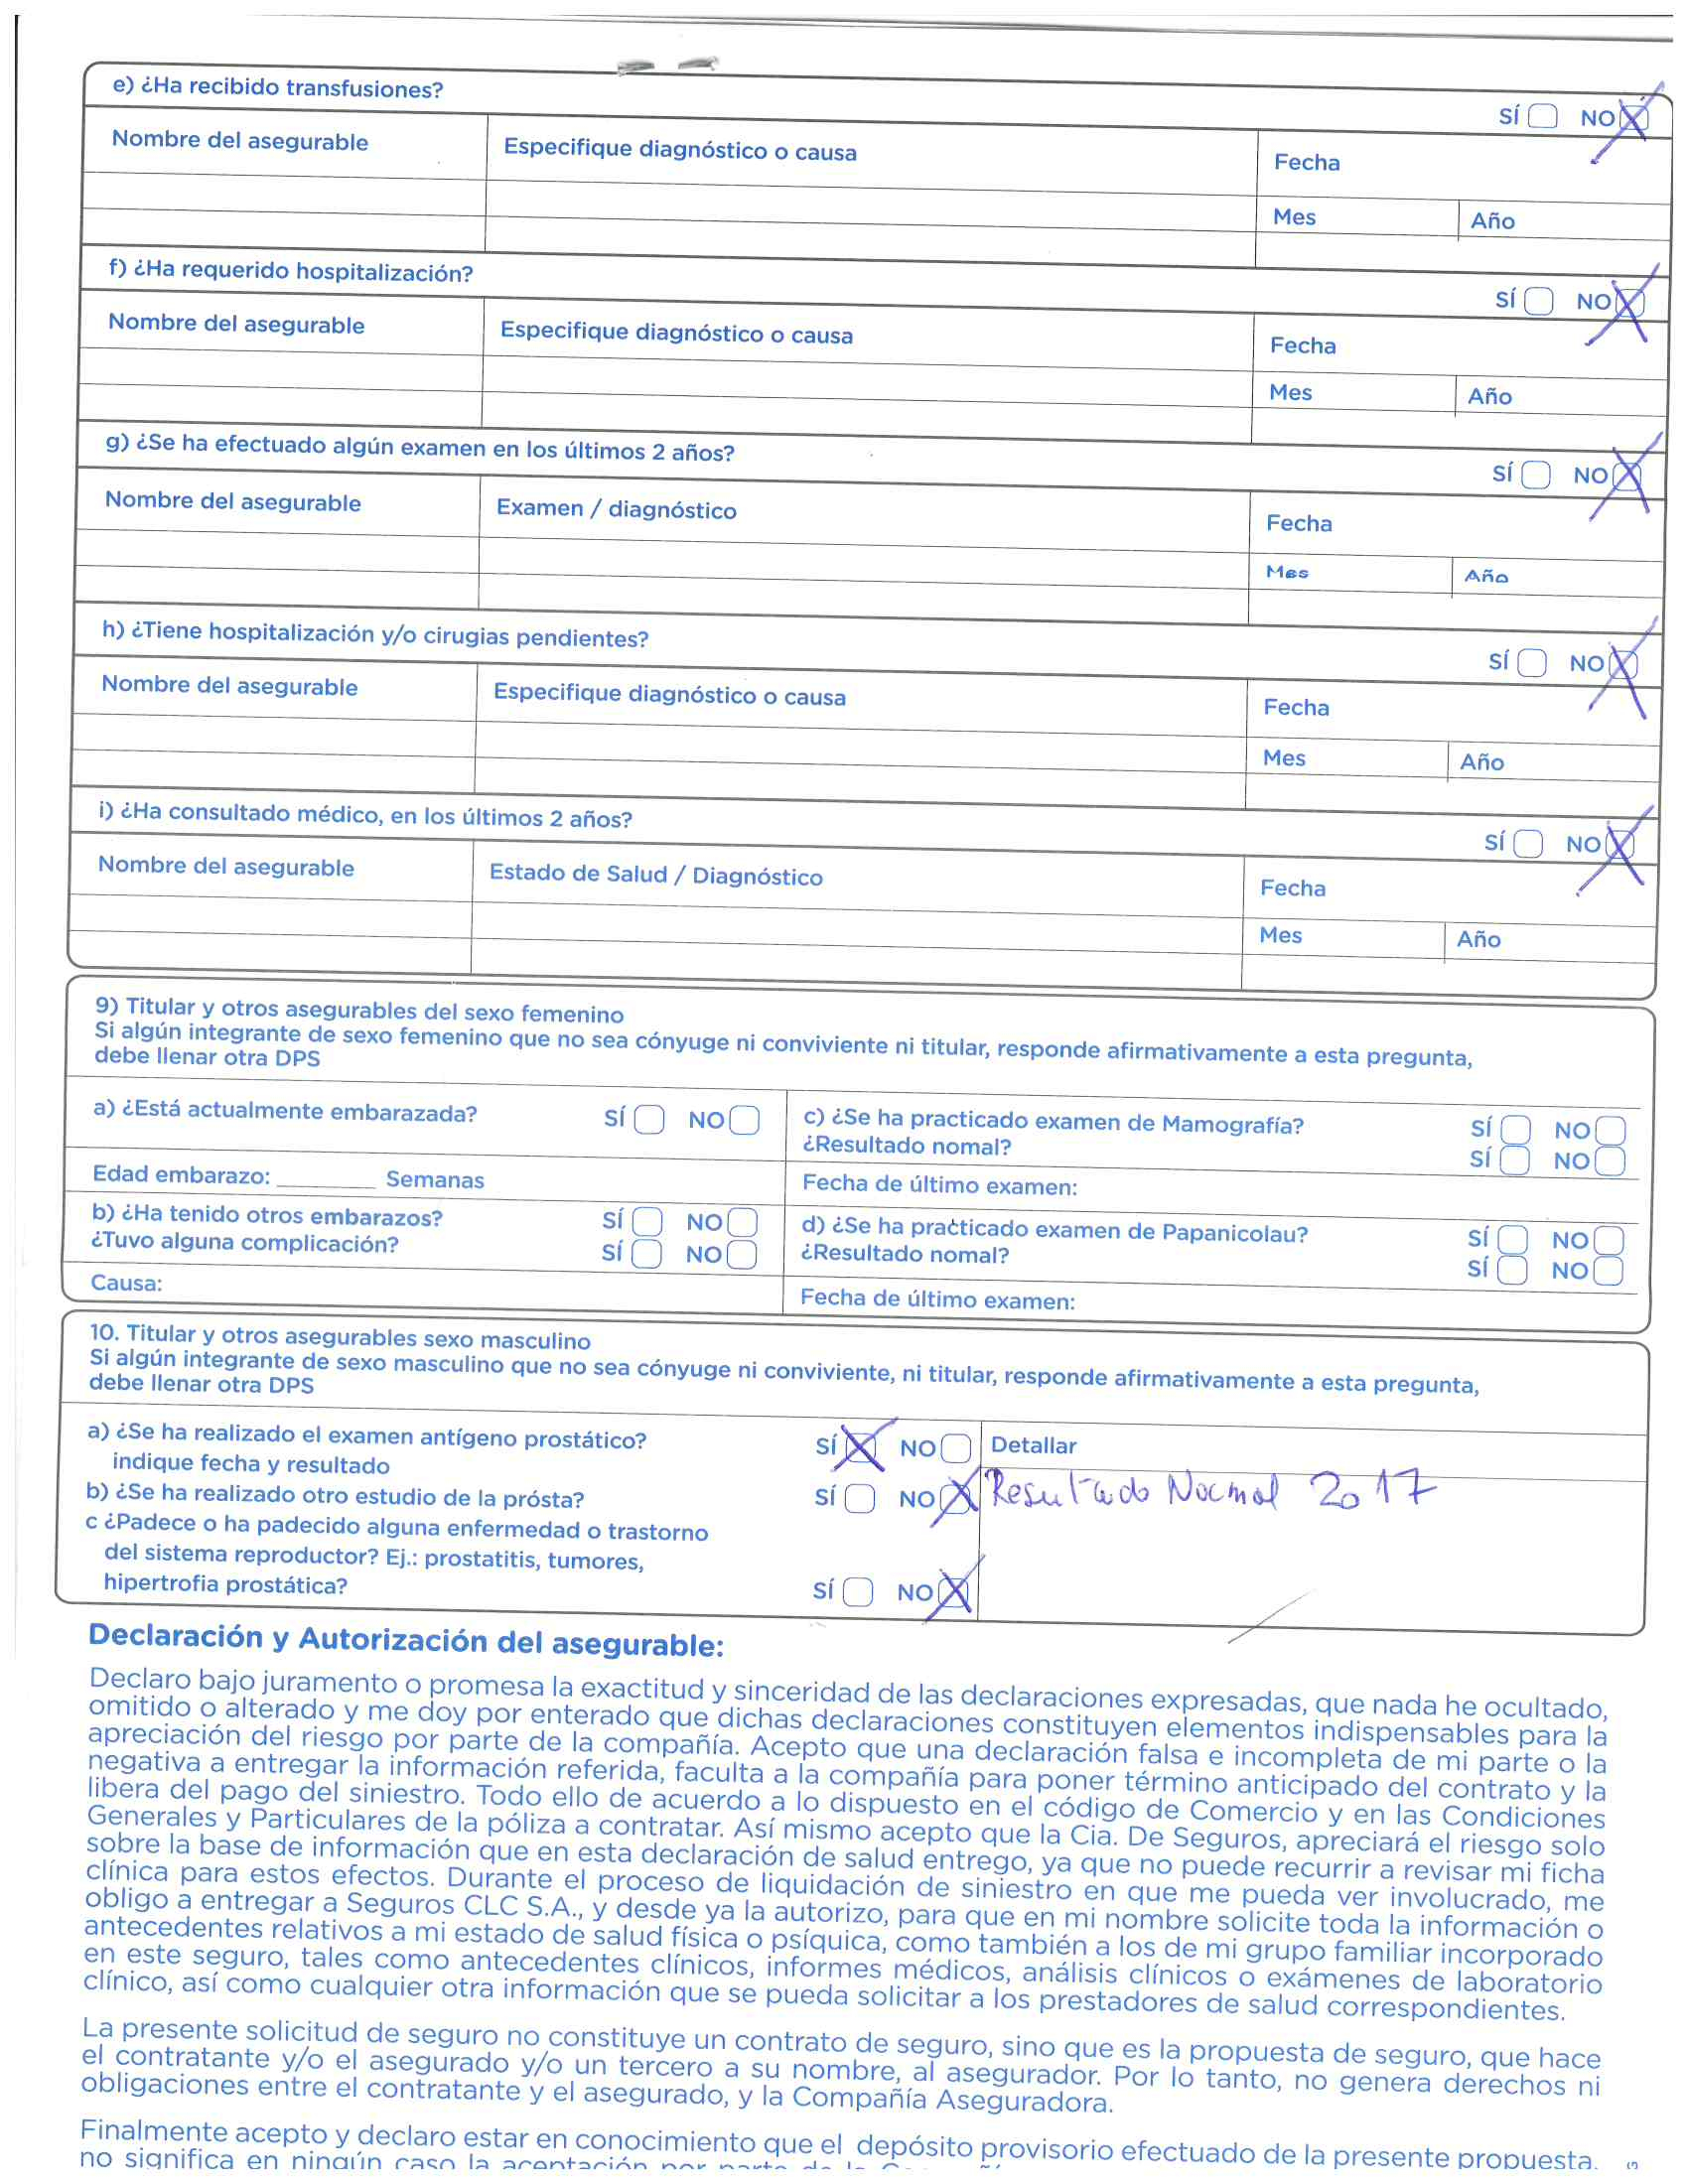 e) ¿Ha recibido transfusiones?
SÍ NO X
Nombre del asegurable Especifique diagnóstico o causa Fecha
Mes Año
f) ¿Ha requerido hospitalización?
SÍ NO X
Nombre del asegurable Especifique diagnóstico o causa Fecha
Mes Año
g) ¿Se ha efectuado algún examen en los últimos 2 años?
SÍ NO X
Nombre del asegurable Examen / diagnóstico Fecha
Mes Año
h) ¿Tiene hospitalización y/o cirugias pendientes?
SÍ NO X
Nombre del asegurable Especifique diagnóstico o causa Fecha
Mes Año
i) ¿Ha consultado médico, en los últimos 2 años?
SÍ NO X
Nombre del asegurable Estado de Salud / Diagnóstico Fecha
Mes Año
9) Titular y otros asegurables del sexo femenino
Si algún integrante de sexo femenino que no sea cónyuge ni conviviente ni titular, responde afirmativamente a esta pregunta,
debe llenar otra DPS
a) ¿Está actualmente embarazada? SÍ NO
Edad embarazo: ________ Semanas
b) ¿Ha tenido otros embarazos? SÍ NO
¿Tuvo alguna complicación? SÍ NO
Causa:
c) ¿Se ha practicado examen de Mamografía? SÍ NO
¿Resultado nomal? SÍ NO
Fecha de último examen:
d) ¿Se ha practicado examen de Papanicolau? SÍ NO
¿Resultado nomal? SÍ NO
Fecha de último examen:
10. Titular y otros asegurables sexo masculino
Si algún integrante de sexo masculino que no sea cónyuge ni conviviente, ni titular, responde afirmativamente a esta pregunta,
debe llenar otra DPS
a) ¿Se ha realizado el examen antígeno prostático? SÍ X NO Detallar
indique fecha y resultado
b) ¿Se ha realizado otro estudio de la prósta? SÍ NO X Resultado Normal 2017
c ¿Padece o ha padecido alguna enfermedad o trastorno
del sistema reproductor? Ej.: prostatitis, tumores,
hipertrofia prostática? SÍ NO X
Declaración y Autorización del asegurable:
Declaro bajo juramento o promesa la exactitud y sinceridad de las declaraciones expresadas, que nada he ocultado,
omitido o alterado y me doy por enterado que dichas declaraciones constituyen elementos indispensables para la
apreciación del riesgo por parte de la compañía. Acepto que una declaración falsa e incompleta de mi parte o la
negativa a entregar la información referida, faculta a la compañía para poner término anticipado del contrato y la
libera del pago del siniestro. Todo ello de acuerdo a lo dispuesto en el código de Comercio y en las Condiciones
Generales y Particulares de la póliza a contratar. Así mismo acepto que la Cia. De Seguros, apreciará el riesgo solo
sobre la base de información que en esta declaración de salud entrego, ya que no puede recurrir a revisar mi ficha
clínica para estos efectos. Durante el proceso de liquidación de siniestro en que me pueda ver involucrado, me
obligo a entregar a Seguros CLC S.A., y desde ya la autorizo, para que en mi nombre solicite toda la información o
antecedentes relativos a mi estado de salud física o psíquica, como también a los de mi grupo familiar incorporado
en este seguro, tales como antecedentes clínicos, informes médicos, análisis clínicos o exámenes de laboratorio
clínico, así como cualquier otra información que se pueda solicitar a los prestadores de salud correspondientes.
La presente solicitud de seguro no constituye un contrato de seguro, sino que es la propuesta de seguro, que hace
el contratante y/o el asegurado y/o un tercero a su nombre, al asegurador. Por lo tanto, no genera derechos ni
obligaciones entre el contratante y el asegurado, y la Compañía Aseguradora.
Finalmente acepto y declaro estar en conocimiento que el depósito provisorio efectuado de la presente propuesta,
no significa en ningún caso la aceptación por parte de la